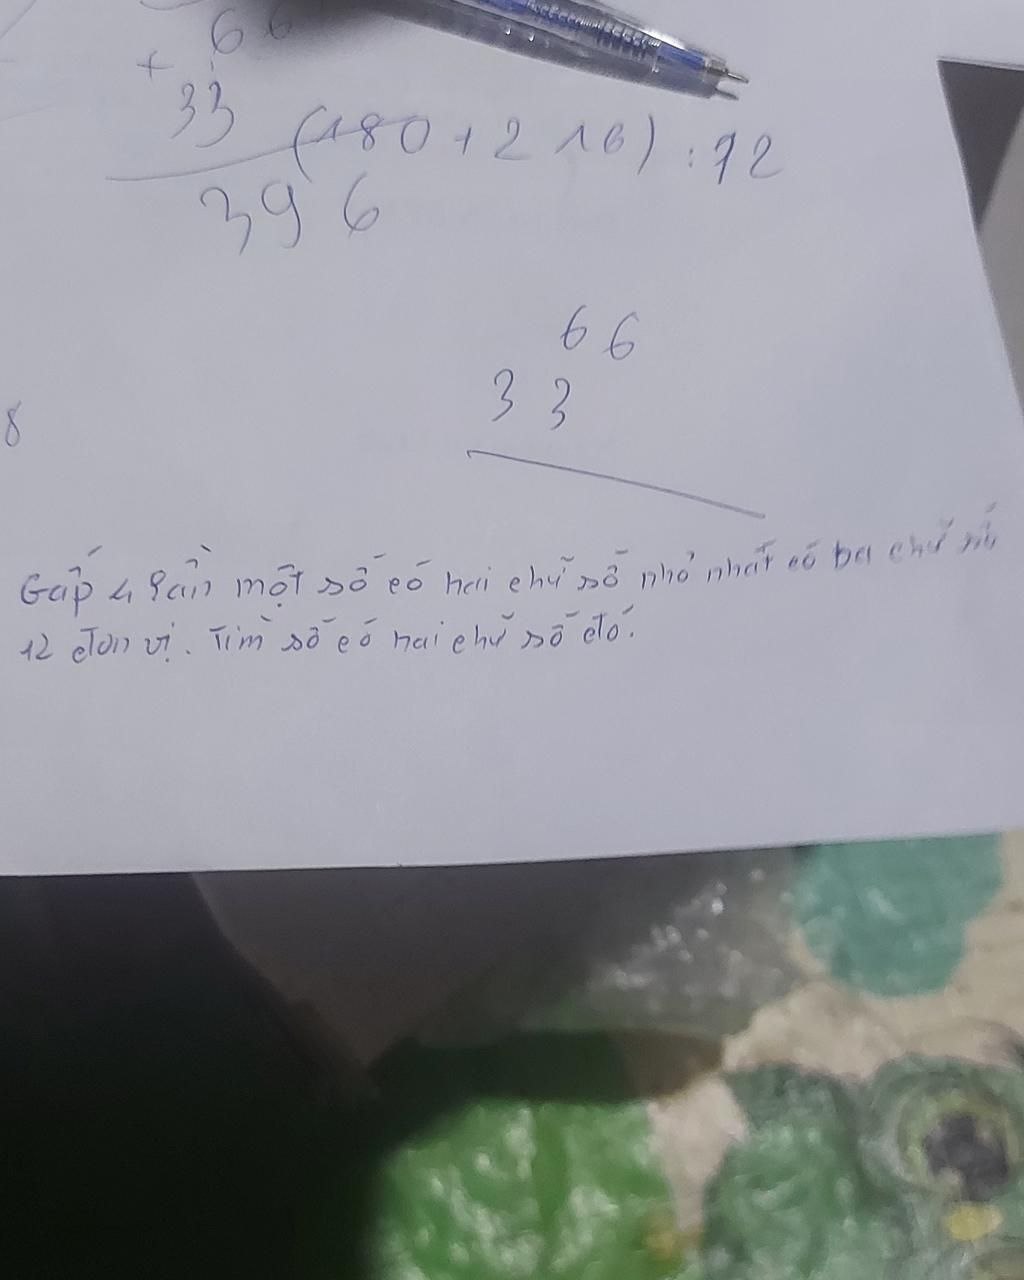 66
+
33
(180 + 216) : 12
396
66
33
8
Gấp 4 lần một số có hai chữ số nhỏ nhất có ba chữ số
12 đơn vị. Tìm số có hai chữ số đó.